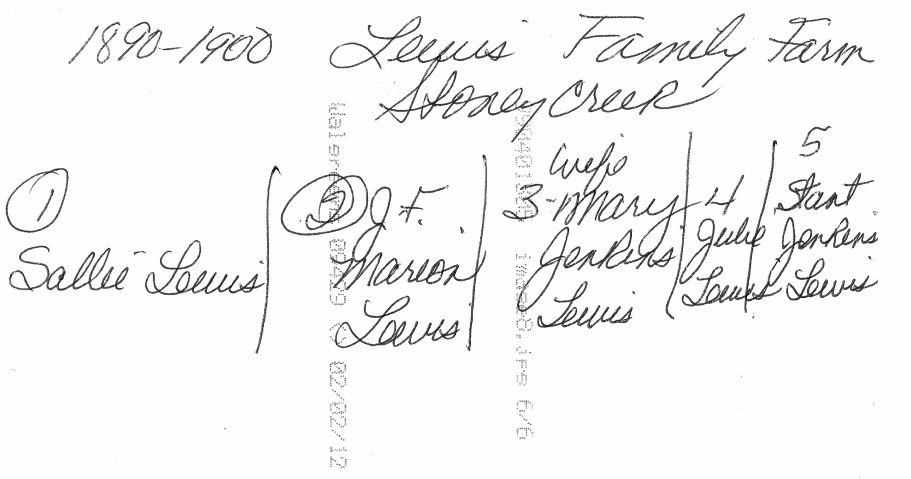 1890-1900 Lewis Family Farm
Stoney Creek
1
Sallie Lewis
2 J.F.
Marion
Lewis
wife
3-Mary
Jenkins
Lewis
4
Julie
Lewis
5
Stant
Jenkins
Lewis
02/02/12
6/6